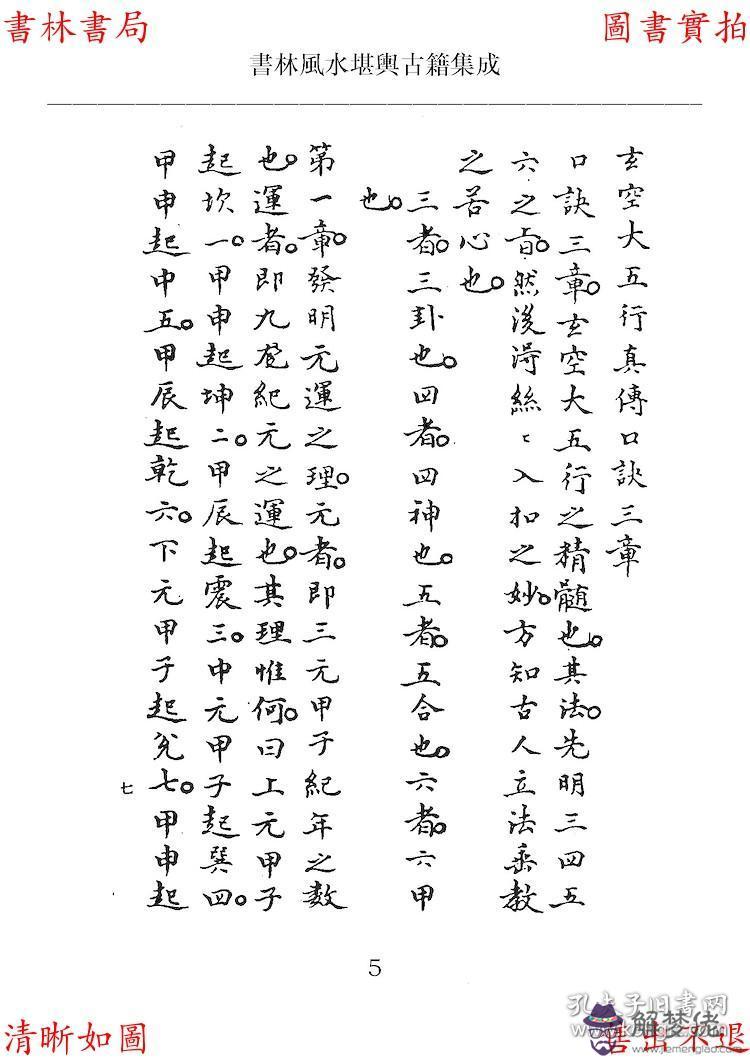 書林書局
圖書實拍
書林風水堪輿古籍集成
玄空大五行真傳口訣三章
口訣三章。玄空大五行之精髓也。其法。先明三四五
六之旨。然後得絲〻入扣之妙。方知古人立法垂教
之苦心也。
三者。三卦也。四者。四神也。五者。五合也。六者。六甲
也。
第一章。發明元運之理。元者。即三元甲子紀年之數
也。運者。即九宮紀元之運也。其理惟何。曰上元甲子
起坎一。甲申起坤二。甲辰起震三。中元甲子起巽四。
甲申起中五。甲辰起乾六。下元甲子起兌七。甲申起
七
5
孔夫子旧書网
解梦佬
www.jiemenglao.com
清晰如圖
售出不退